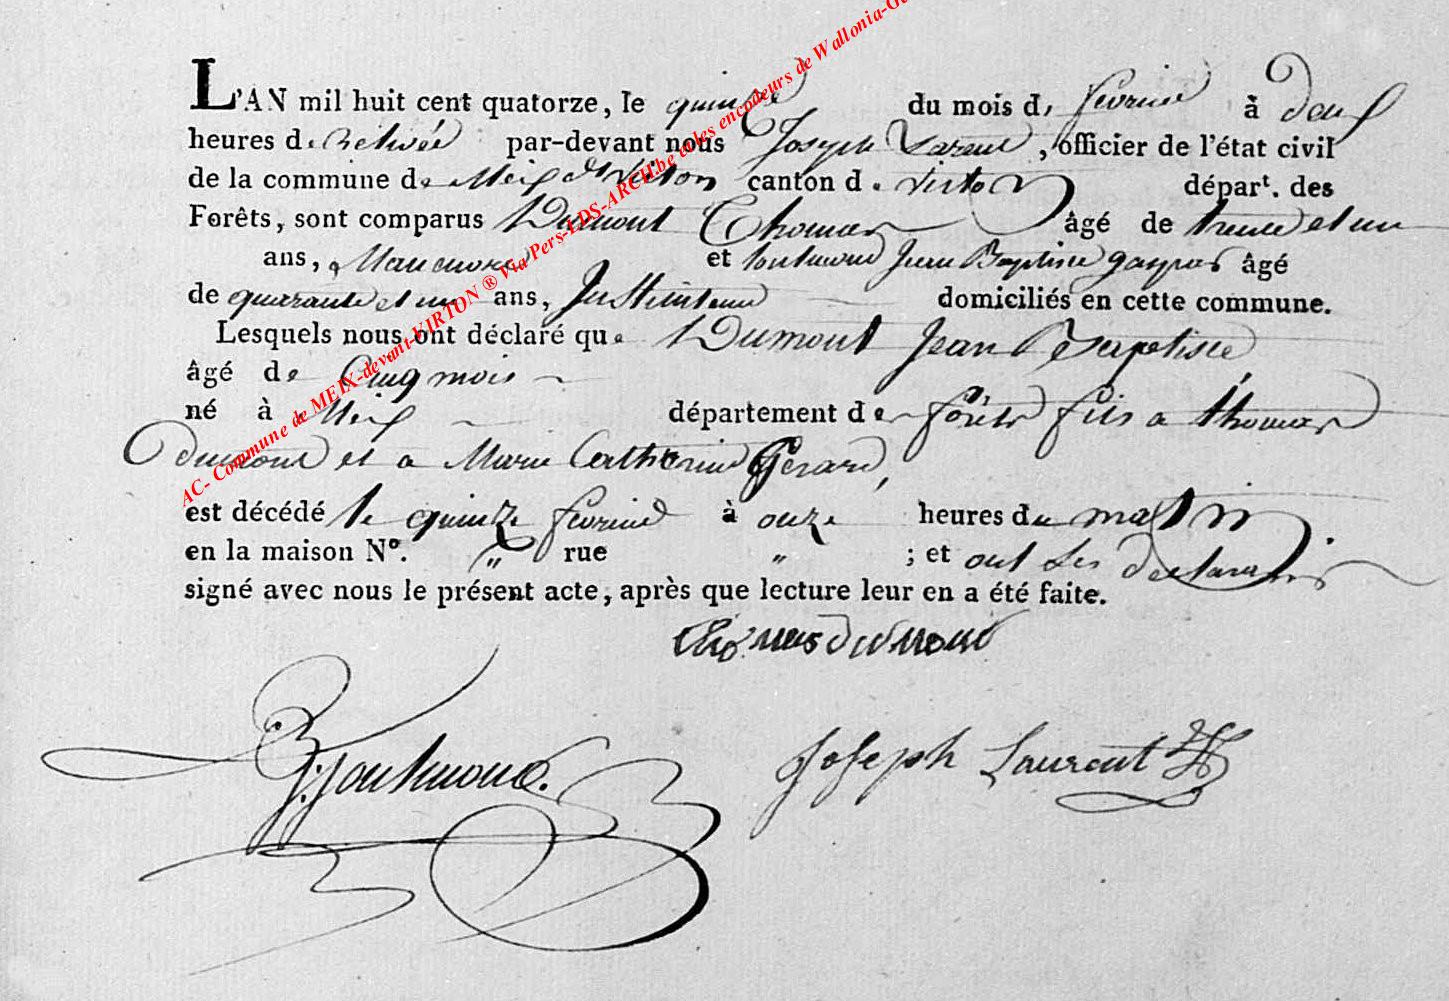 L'AN mil huit cent quatorze, le quinze du mois de fevrier à deux
heures de relevée par-devant nous Joseph Laurent, officier de l'état civil
de la commune de Meix dt virton canton de virton départ. des
Forêts, sont comparus Dumont Thomas âgé de trente et un
ans, Manouvre et toutmond Jean Baptiste gaspar âgé
de quarante et un ans, domiciliés en cette commune.
Lesquels nous ont déclaré que Dumont Jean Baptiste
âgé de Cinq mois
né à Meix département de forets fils a thomas
dumont et a Marie Catherine Gerard,
est décédé le quinze fevrier à onze heures du matin
en la maison No. " rue " ; et ont les declarans
signé avec nous le présent acte, après que lecture leur en a été faite.
thomas dumont
J: toutmond.
Joseph Laurent
AC- Commune de MEIX-devant-VIRTON ® Via Pers-LDS-ARCH.be et les encodeurs de Wallonia-